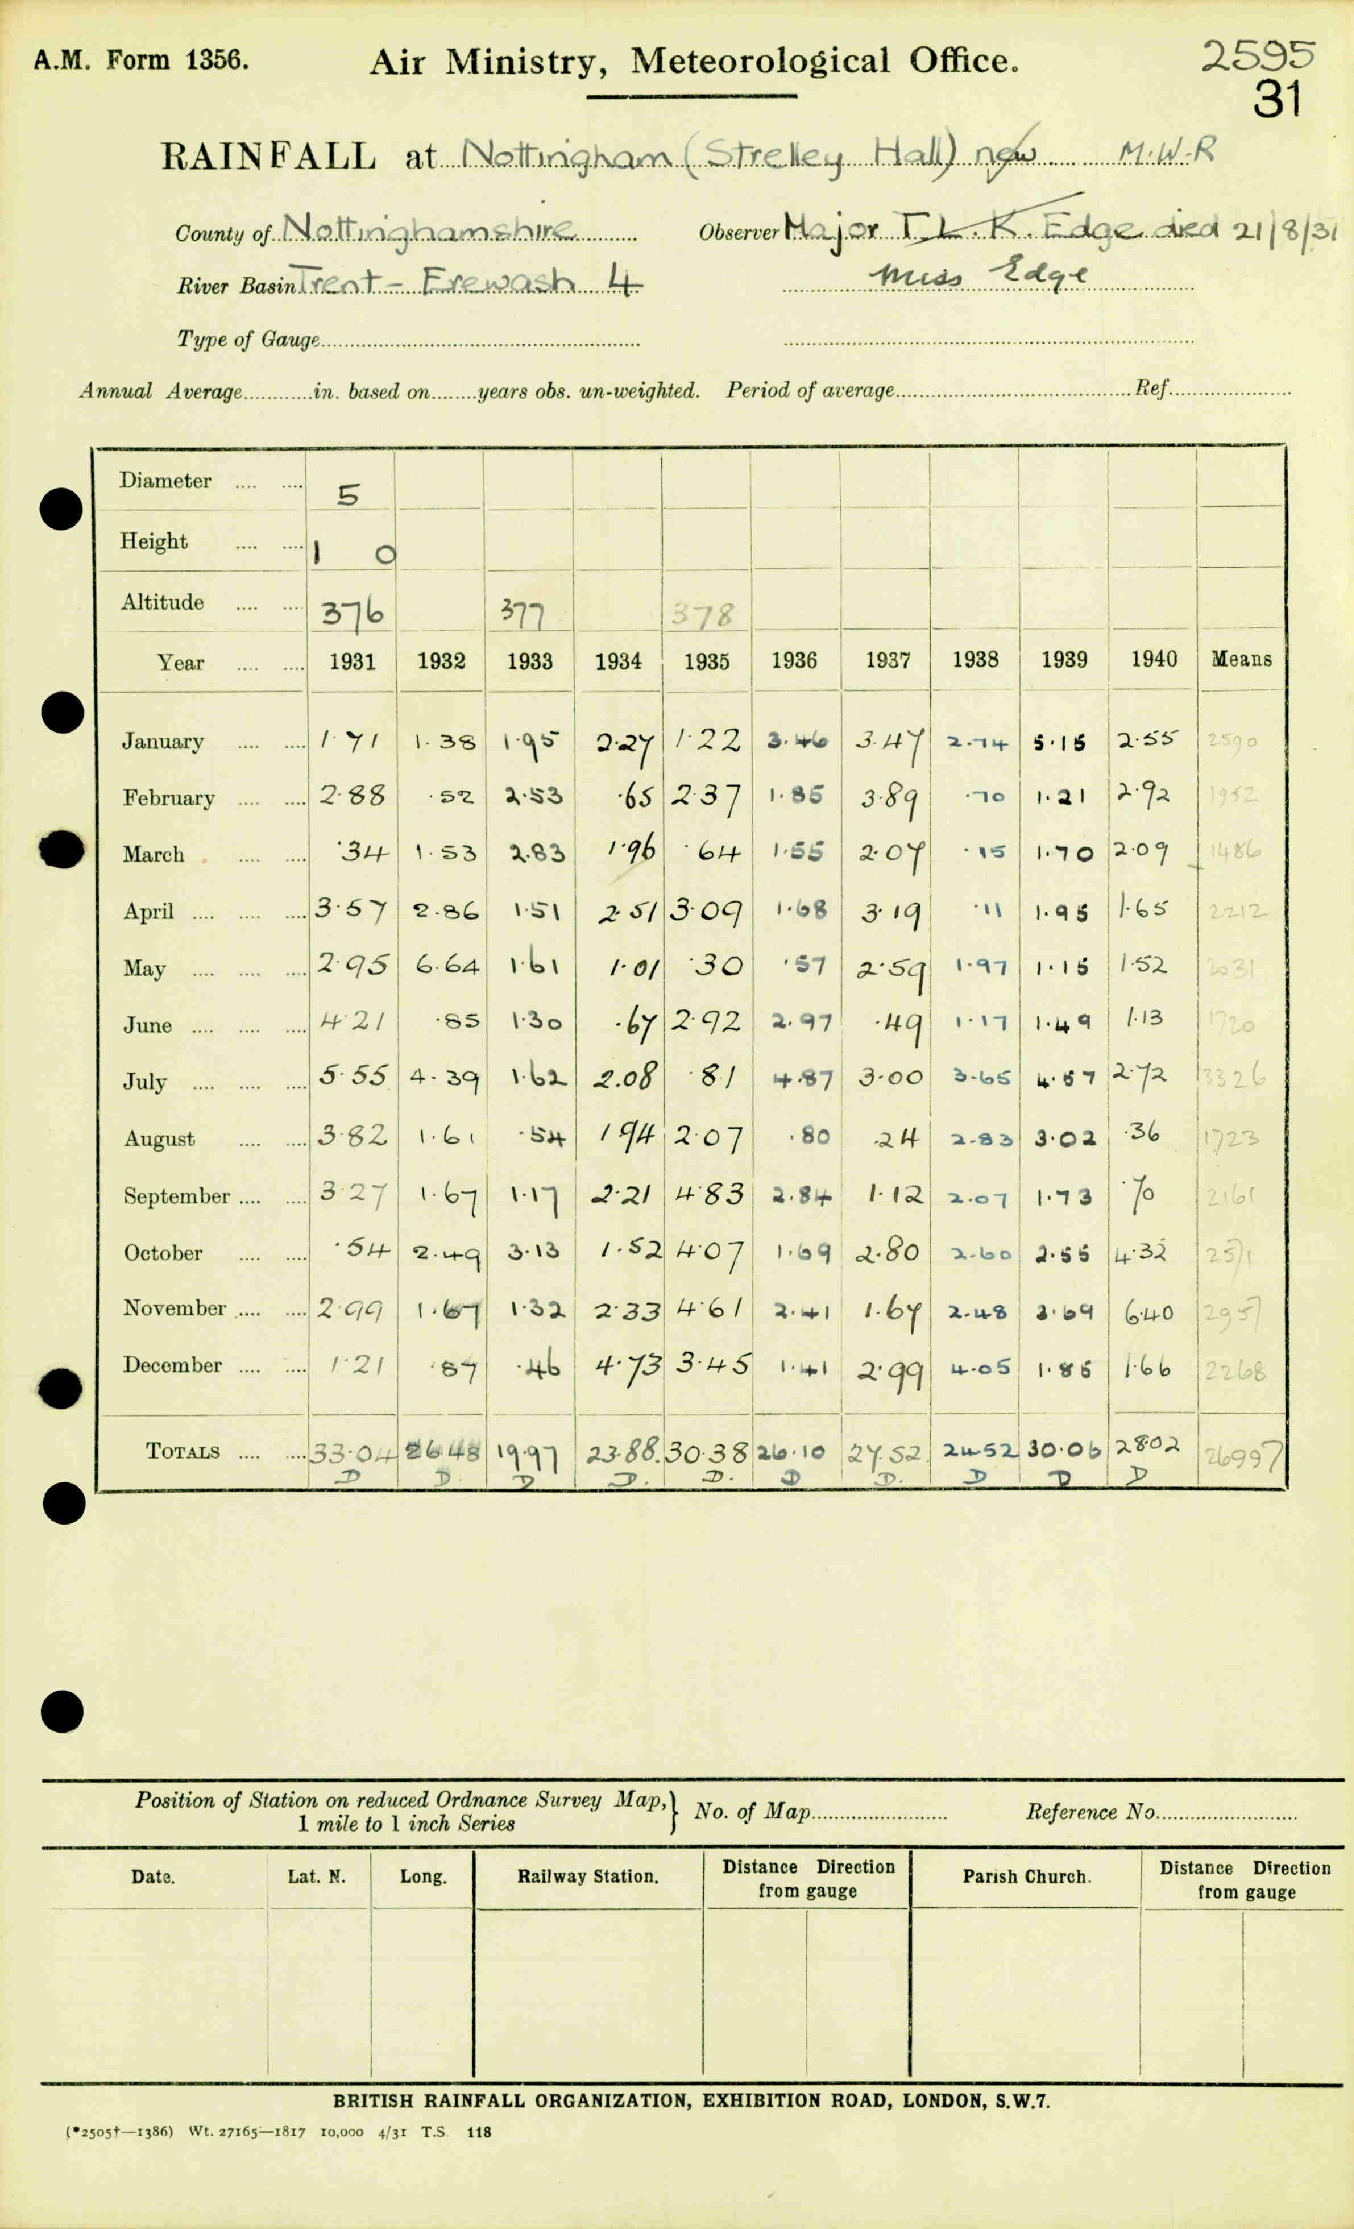 A.M. Form 1356.
Air Ministry, Meteorological Office.
2595
31
RAINFALL at Nottingham (Strelley Hall) new M.W.R
County of Nottinghamshire Observer Major T.L.K. Edge died 21/8/31
River Basin Trent - Erewash 4 Miss Edge
Type of Gauge
Annual Average in. based on years obs. un-weighted. Period of average Ref.
Diameter 5
Height 1 0
Altitude 376 377 378
Year 1931 1932 1933 1934 1935 1936 1937 1938 1939 1940 Means
January 1.71 1.38 1.95 2.27 1.22 3.46 3.47 2.74 5.15 2.55 2590
February 2.88 .52 2.53 .65 2.37 1.85 3.89 .70 1.21 2.92 1952
March .34 1.53 2.83 1.96 .64 1.55 2.07 .15 1.70 2.09 1486
April 3.57 2.86 1.51 2.51 3.09 1.68 3.19 .11 1.95 1.65 2212
May 2.95 6.64 1.61 1.01 .30 .57 2.59 1.97 1.15 1.52 2031
June 4.21 .85 1.30 .67 2.92 2.97 .49 1.17 1.49 1.13 1720
July 5.55 4.39 1.62 2.08 .81 4.87 3.00 3.65 4.57 2.72 3326
August 3.82 1.61 .54 1.94 2.07 .80 .24 2.83 3.02 .36 1723
September 3.27 1.67 1.17 2.21 4.83 2.84 1.12 2.07 1.73 .70 2161
October .54 2.49 3.13 1.52 4.07 1.69 2.80 2.60 2.55 4.32 2571
November 2.99 1.67 1.32 2.33 4.61 2.41 1.67 2.48 3.69 6.40 2957
December 1.21 .87 .46 4.73 3.45 1.41 2.99 4.05 1.85 1.66 2268
TOTALS 33.04 26.48 19.97 23.88 30.38 26.10 27.52 24.52 30.06 28.02 26997
D D D D. D. D D. D D D
Position of Station on reduced Ordnance Survey Map,} No. of Map Reference No.
1 mile to 1 inch Series
Date. Lat. N. Long. Railway Station. Distance Direction from gauge Parish Church. Distance Direction from gauge
BRITISH RAINFALL ORGANIZATION, EXHIBITION ROAD, LONDON, S.W.7.
(*2505†—1386) Wt. 27165—1817 10,000 4/31 T.S. 118